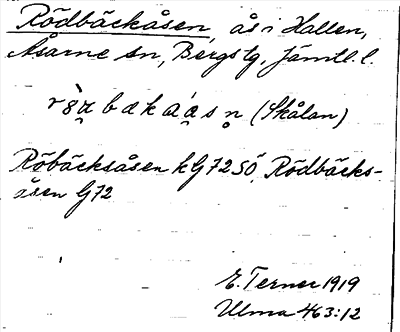 Rödbäckåsen, ås i Hallen,
Åsarne sn, Bergs tg, Jämtl. l.
(Skålan)
Röbäcksåsen kG72SÖ, Rödbäcks-
åsen G72
E. Terner 1919
Ulma 463:12